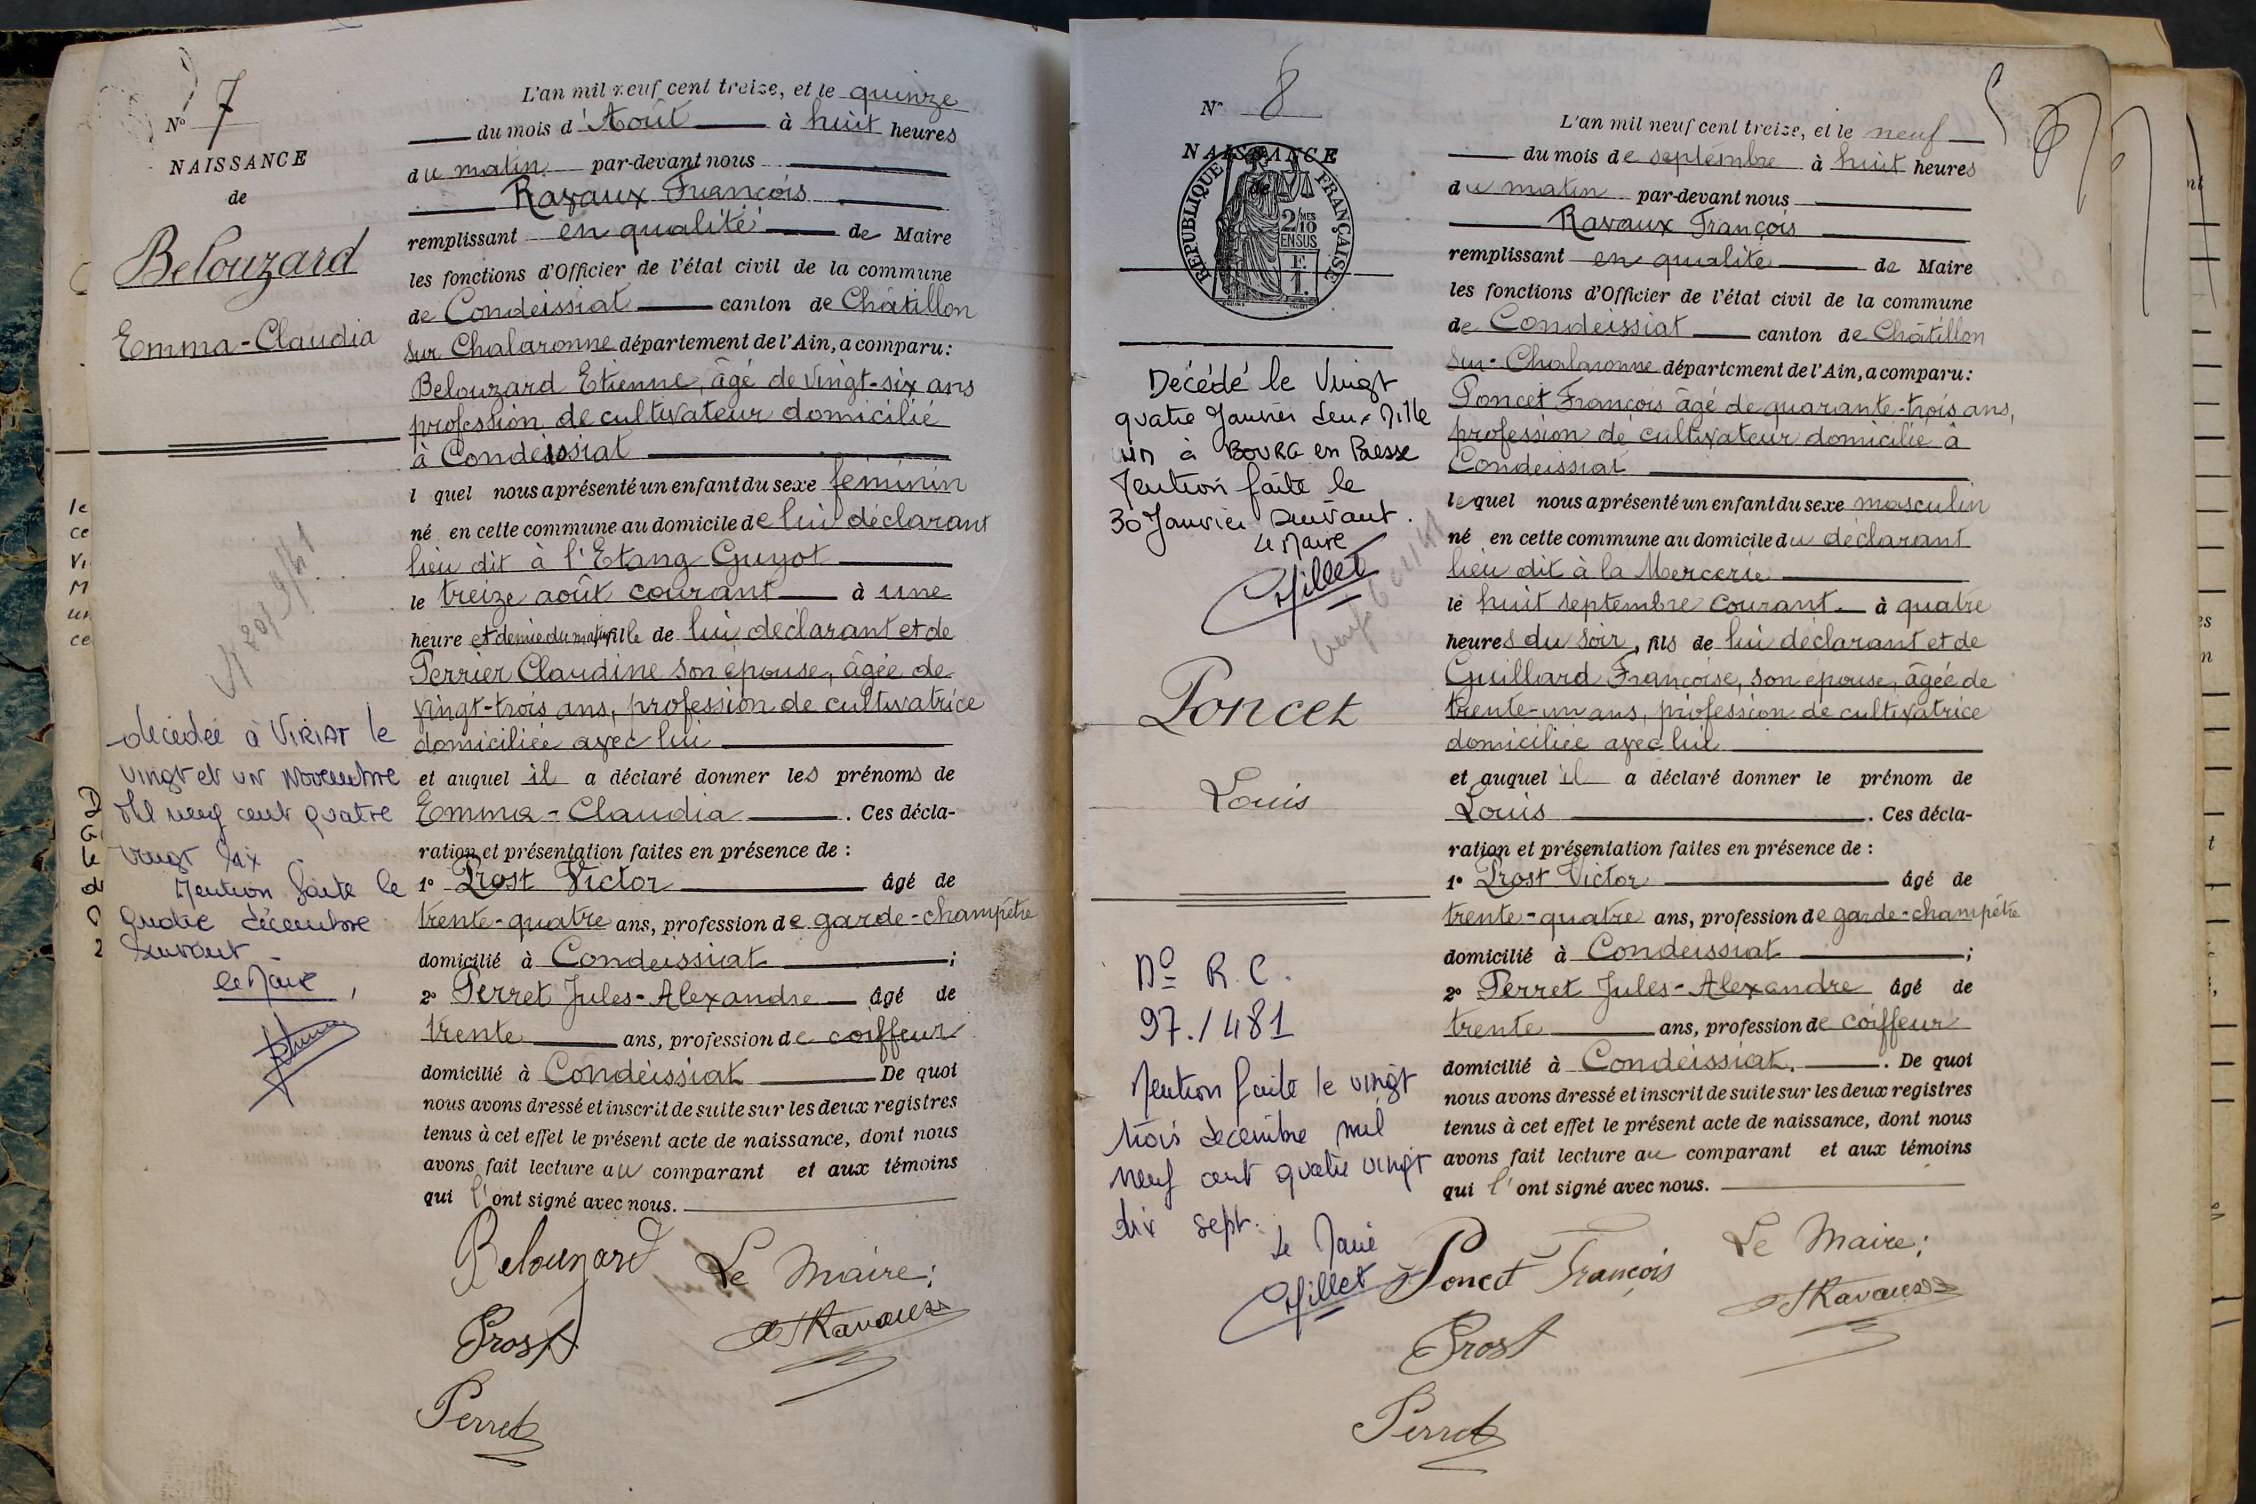 N° 7
NAISSANCE
de
Belouzard
Emma-Claudia
décédée à VIRIAT le
vingt et un Novembre
mil neuf cent quatre
vingt six
Mention faite le
quatre décembre
suivant
le Maire,
L'an mil neuf cent treize, et le quinze
du mois d'Août à huit heures
du matin par-devant nous
Ravaux François
remplissant en qualité de Maire
les fonctions d'Officier de l'état civil de la commune
de Condeissiat canton de Châtillon
sur Chalaronne département de l'Ain, a comparu:
Belouzard Etienne, âgé de vingt-six ans
profession de cultivateur domicilié
à Condeissiat
l quel nous a présenté un enfant du sexe féminin
né en cette commune au domicile de lui déclarant
lieu dit à l'Etang Guyot
le treize août courant à une
heure et demie du matin fille de lui déclarant et de
Perrier Claudine son épouse, âgée de
vingt-trois ans, profession de cultivatrice
domiciliée avec lui
et auquel il a déclaré donner les prénoms de
Emma-Claudia. Ces décla-
ration et présentation faites en présence de :
1° Prost Victor âgé de
trente-quatre ans, profession de garde-champêtre
domicilié à Condeissiat;
2° Perret Jules-Alexandre âgé de
trente ans, profession de coiffeur
domicilié à Condeissiat De quoi
nous avons dressé et inscrit de suite sur les deux registres
tenus à cet effet le présent acte de naissance, dont nous
avons fait lecture au comparant et aux témoins
qui l'ont signé avec nous.
Belouzard Le Maire:
Prost Ravaux
Perret
N° 8
NAISSANCE
de
RÉPUBLIQUE FRANÇAISE
2/10 MES
EN SUS
F.
1.
Décédé le Vingt
quatre Janvier deux Mille
un à BOURG en Bresse
Mention faite le
30 Janvier suivant.
Le Maire
Gillet
Poncet
Louis
N° R.C.
97./481
Mention faite le vingt
trois décembre mil
neuf cent quatre vingt
dix sept.
Le Maire
Gillet
L'an mil neuf cent treize, et le neuf
du mois de septembre à huit heures
du matin par-devant nous
Ravaux François
remplissant en qualité de Maire
les fonctions d'Officier de l'état civil de la commune
de Condeissiat canton de Châtillon
sur-Chalaronne département de l'Ain, a comparu:
Poncet François âgé de quarante-trois ans,
profession de cultivateur domicilié à
Condeissiat
lequel nous a présenté un enfant du sexe masculin
né en cette commune au domicile du déclarant
lieu dit à la Mercerie
le huit septembre courant. à quatre
heures du soir, fils de lui déclarant et de
Guillard Françoise, son épouse, âgée de
trente-un ans, profession de cultivatrice
domiciliée avec lui
et auquel il a déclaré donner le prénom de
Louis. Ces décla-
ration et présentation faites en présence de :
1° Prost Victor âgé de
trente-quatre ans, profession de garde-champêtre
domicilié à Condeissiat;
2° Perret Jules-Alexandre âgé de
trente ans, profession de coiffeur
domicilié à Condeissiat. De quoi
nous avons dressé et inscrit de suite sur les deux registres
tenus à cet effet le présent acte de naissance, dont nous
avons fait lecture au comparant et aux témoins
qui l'ont signé avec nous.
Poncet François Le Maire:
Prost Ravaux
Perret